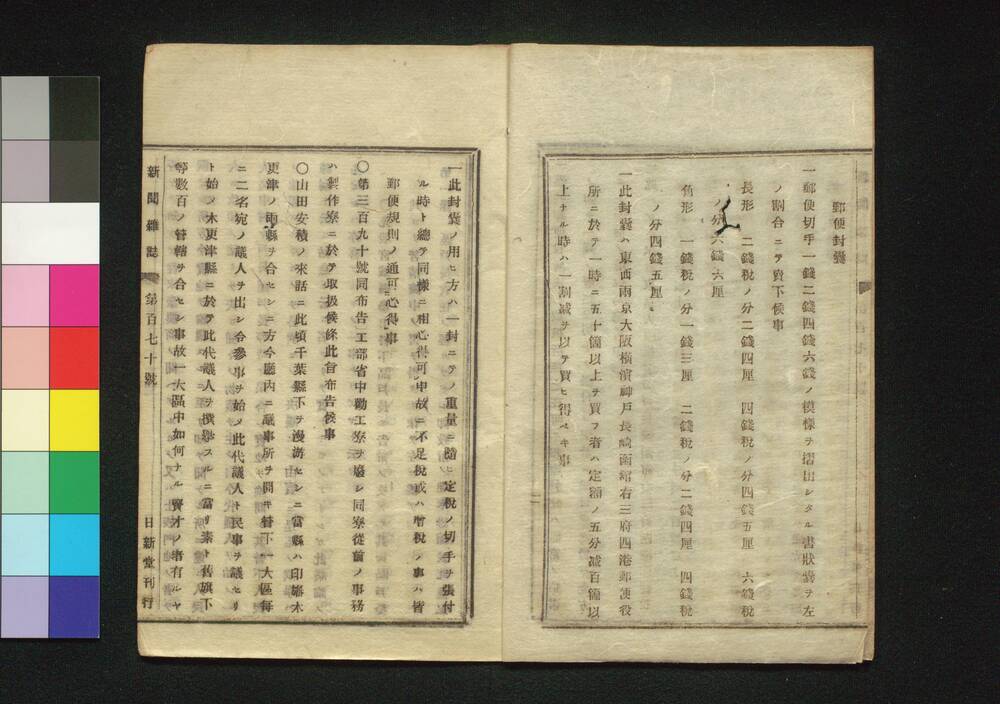 郵便封嚢
一郵便切手一錢二錢四錢六錢ノ模樣ヲ摺出シタル書狀嚢ヲ左
ノ割合ニテ賣下候事
長形 二錢稅ノ分二錢四厘 四錢稅ノ分四錢五厘 六錢稅
ノ分六錢六厘
角形 一錢稅ノ分一錢三厘 二錢稅ノ分二錢四厘 四錢稅
ノ分四錢五厘
一此封嚢ハ東西兩京大阪橫濱神戶長崎函館右三府四港郵便役
所ニ於テ一時ニ五十個以上ヲ買フ者ハ定額ノ五分減百個以
上ナル時ハ一割減ヲ以テ買ヒ得ベキ事
一此封嚢ノ用ヒ方ハ一封ニテノ重量ニ隨ヒ定稅ノ切手ヲ張付
ル時ト總テ同樣ニ相心得可申故ニ不足稅或ハ增稅ノ事ハ皆
郵便規則ノ通可心得事
〇第三百九十號同布告工部省中勸工寮ヲ廢シ同寮從前ノ事務
ハ製作寮ニ於テ取扱候條此旨布告候事
〇山田安積ノ來話ニ此頃千葉縣下ヲ漫游セシニ當縣ハ印旛木
更津ノ兩縣ヲ合セシニ方今廳內ニ議事所ヲ開キ管下一大區每
ニ二名宛ノ議人ヲ出シ令參事ヲ始メ此代議人ト民事ヲ議セリ
ト始メ木更津縣ニ於テ此代議人ヲ撰擧スルニ當リ素ト舊旗下
等數百ノ管轄ヲ合セシ事故一大區中如何ナル賢才ノ者有ルヤ
新聞雜誌 第百七十號 日新堂刊行